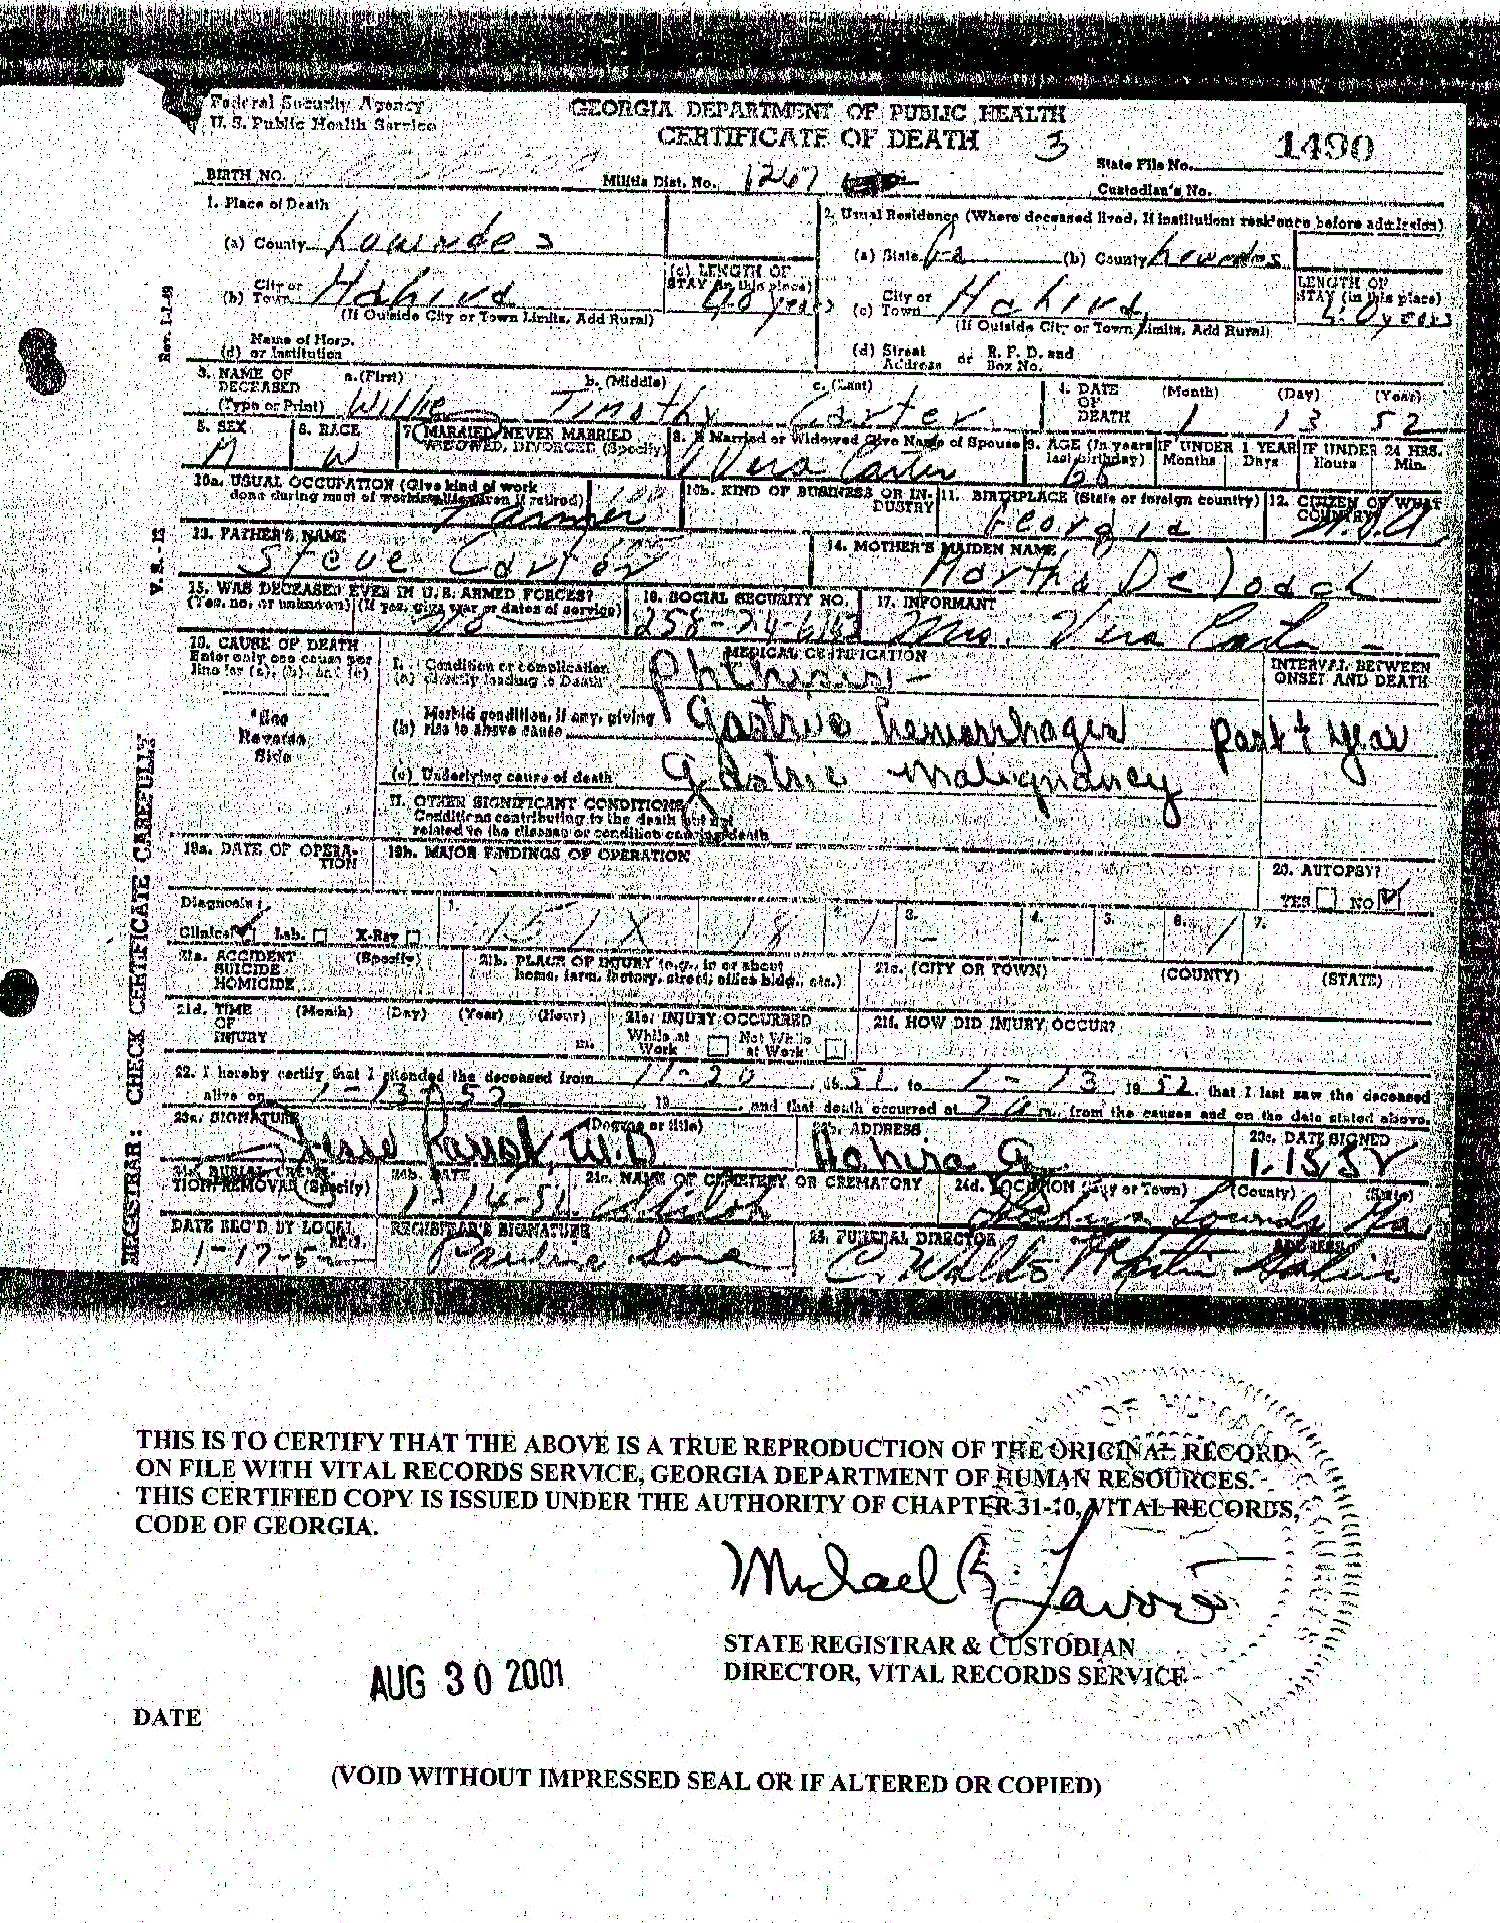 Federal Security Agency
U. S. Public Health Service
GEORGIA DEPARTMENT OF PUBLIC HEALTH
CERTIFICATE OF DEATH 3
1490
State File No.
BIRTH NO.
Militia Dist. No. 1267
Custodian's No.
1. Place of Death
(a) County Lowndes
City or
(b) Town Hahira
(If Outside City or Town Limits, Add Rural)
(c) LENGTH OF
STAY (in this place)
40 years
Name of Hosp.
(d) or Institution
2. Usual Residence (Where deceased lived, If institution: residence before admission)
(a) State Ga (b) County Lowndes
City or
(c) Town Hahira
(If Outside City or Town Limits, Add Rural)
LENGTH OF
STAY (in this place)
40 years
(d) Street Address or R. F. D. and Box No.
3. NAME OF
DECEASED
(Type or Print)
a. (First) b. (Middle) c. (Last)
Willie Timothy Carter
4. DATE
OF
DEATH
(Month) (Day) (Year)
1 13 52
5. SEX
M
6. RACE
W
7. MARRIED, NEVER MARRIED
WIDOWED, DIVORCED (Specify)
8. If Married or Widowed Give Name of Spouse
Vera Carter
9. AGE (In years
last birthday)
IF UNDER 1 YEAR
Months Days
IF UNDER 24 HRS.
Hours Min.
10a. USUAL OCCUPATION (Give kind of work
done during most of working life, even if retired)
Farmer
10b. KIND OF BUSINESS OR INDUSTRY
11. BIRTHPLACE (State or foreign country)
Georgia
12. CITIZEN OF WHAT
COUNTRY?
U.S.A
13. FATHER'S NAME
Steve Carter
14. MOTHER'S MAIDEN NAME
Martha Deloach
15. WAS DECEASED EVER IN U. S. ARMED FORCES?
(Yes, no, or unknown) (If yes, give war or dates of service)
No
16. SOCIAL SECURITY NO.
258-24-
17. INFORMANT
Mrs. Vera Carter
18. CAUSE OF DEATH
Enter only one cause per
line for (a), (b), and (c)
*See
Reverse
Side
MEDICAL CERTIFICATION
INTERVAL BETWEEN
ONSET AND DEATH
I. Condition or complication
(a) directly leading to Death* Phthisis -
Morbid condition, if any, giving
(b) rise to above cause Gastric hemorrhages
year
(c) Underlying cause of death Gastric malignancy
II. OTHER SIGNIFICANT CONDITIONS
Conditions contributing to the death but not
related to the disease or condition causing death
19a. DATE OF OPERATION
19b. MAJOR FINDINGS OF OPERATION
20. AUTOPSY?
YES NO
Diagnosis:
Clinical Lab. X-Ray
1. 151X 18 2. 1 3. - 4. - 5. 6. 1 7.
21a. ACCIDENT
SUICIDE
HOMICIDE
(Specify)
21b. PLACE OF INJURY (e.g., in or about
home, farm, factory, street, office bldg., etc.)
21c. (CITY OR TOWN) (COUNTY) (STATE)
21d. TIME
OF
INJURY
(Month) (Day) (Year) (Hour)
m.
21e. INJURY OCCURRED
While at Work Not While at Work
21f. HOW DID INJURY OCCUR?
22. I hereby certify that I attended the deceased from 11-20, 1951, to 1-13 1952, that I last saw the deceased
alive on 1-13-52, 19, and that death occurred at m., from the causes and on the date stated above.
23a. SIGNATURE (Degree or title)
Jesse Parrott, M.D
23b. ADDRESS
Hahira Ga
23c. DATE SIGNED
1.15.52
24a. BURIAL, CREMATION, REMOVAL (Specify)
24b. DATE
24c. NAME OF CEMETERY OR CREMATORY
Shiloh
24d. LOCATION (City or Town) (County) (State)
Hahira Lowndes Ga.
DATE REC'D BY LOCAL REG.
1-17-52
REGISTRAR'S SIGNATURE
Pauline
25. FUNERAL DIRECTOR ADDRESS
Hahira
REGISTRAR: CHECK CERTIFICATE CAREFULLY
V. S. - 12
Rev. 1-1-49
THIS IS TO CERTIFY THAT THE ABOVE IS A TRUE REPRODUCTION OF THE ORIGINAL RECORD
ON FILE WITH VITAL RECORDS SERVICE, GEORGIA DEPARTMENT OF HUMAN RESOURCES.
THIS CERTIFIED COPY IS ISSUED UNDER THE AUTHORITY OF CHAPTER 31-10, VITAL RECORDS,
CODE OF GEORGIA.
Michael R. Lavoie
STATE REGISTRAR & CUSTODIAN
DIRECTOR, VITAL RECORDS SERVICE
AUG 30 2001
DATE
(VOID WITHOUT IMPRESSED SEAL OR IF ALTERED OR COPIED)